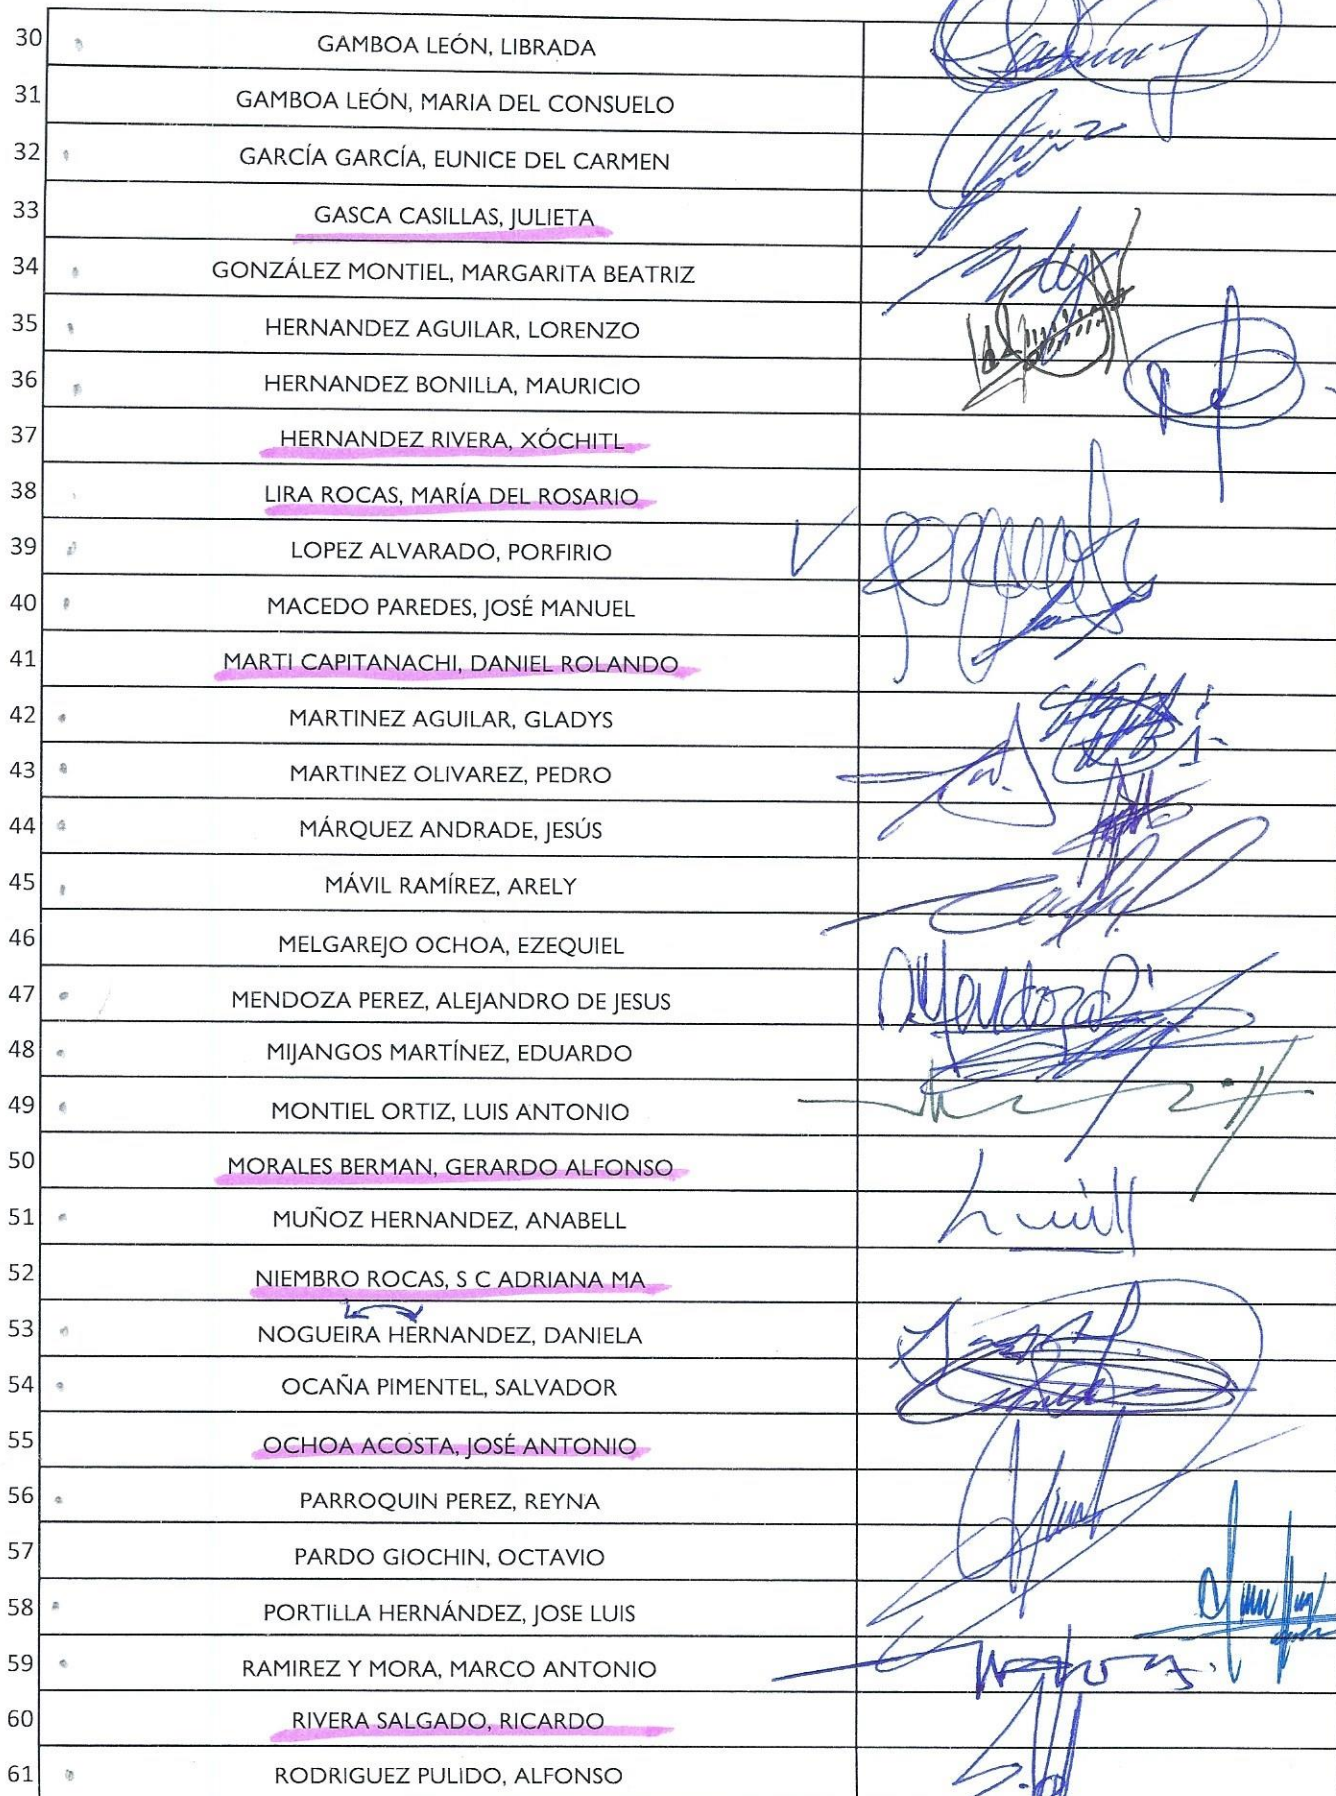 30 GAMBOA LEÓN, LIBRADA
31 GAMBOA LEÓN, MARIA DEL CONSUELO
32 GARCÍA GARCÍA, EUNICE DEL CARMEN
33 GASCA CASILLAS, JULIETA
34 GONZÁLEZ MONTIEL, MARGARITA BEATRIZ
35 HERNANDEZ AGUILAR, LORENZO
36 HERNANDEZ BONILLA, MAURICIO
37 HERNANDEZ RIVERA, XÓCHITL
38 LIRA ROCAS, MARÍA DEL ROSARIO
39 LOPEZ ALVARADO, PORFIRIO
40 MACEDO PAREDES, JOSÉ MANUEL
41 MARTI CAPITANACHI, DANIEL ROLANDO
42 MARTINEZ AGUILAR, GLADYS
43 MARTINEZ OLIVAREZ, PEDRO
44 MÁRQUEZ ANDRADE, JESÚS
45 MÁVIL RAMÍREZ, ARELY
46 MELGAREJO OCHOA, EZEQUIEL
47 MENDOZA PEREZ, ALEJANDRO DE JESUS
48 MIJANGOS MARTÍNEZ, EDUARDO
49 MONTIEL ORTIZ, LUIS ANTONIO
50 MORALES BERMAN, GERARDO ALFONSO
51 MUÑOZ HERNANDEZ, ANABELL
52 NIEMBRO ROCAS, S C ADRIANA MA
53 NOGUEIRA HERNANDEZ, DANIELA
54 OCAÑA PIMENTEL, SALVADOR
55 OCHOA ACOSTA, JOSÉ ANTONIO
56 PARROQUIN PEREZ, REYNA
57 PARDO GIOCHIN, OCTAVIO
58 PORTILLA HERNÁNDEZ, JOSE LUIS
59 RAMIREZ Y MORA, MARCO ANTONIO
60 RIVERA SALGADO, RICARDO
61 RODRIGUEZ PULIDO, ALFONSO